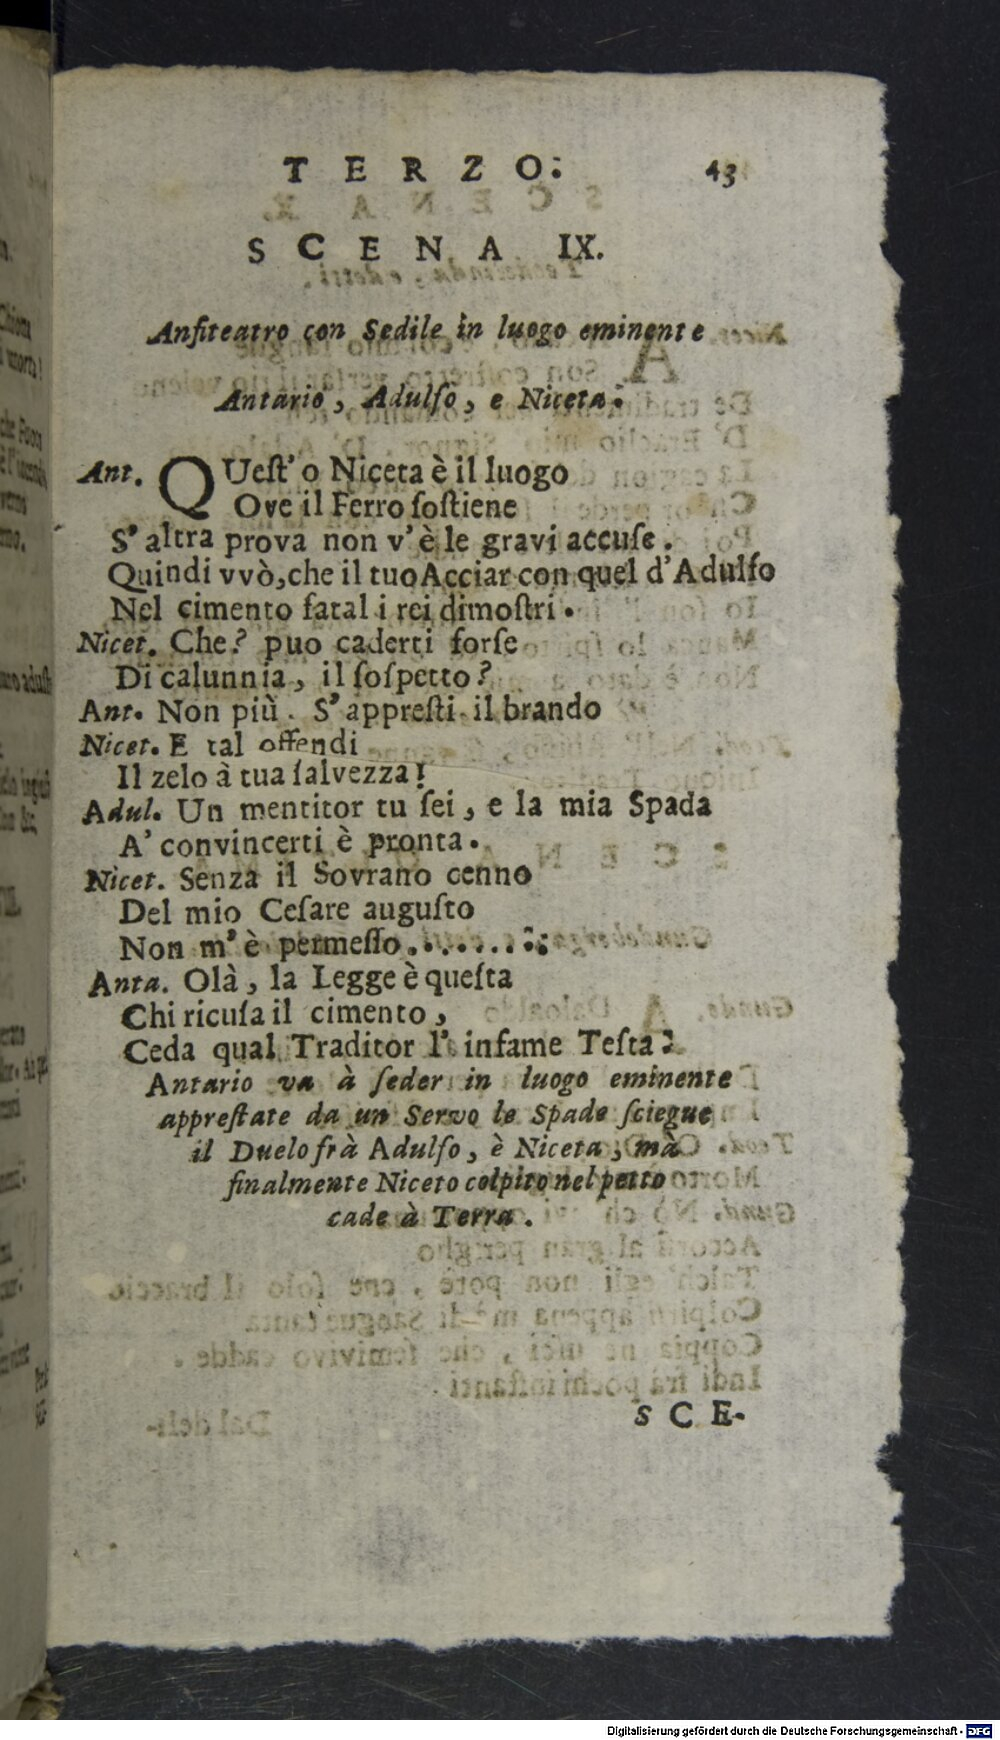 TERZO. 43
SCENA IX.
Anfiteatro con Sedile in luogo eminente
Antario, Adulſo, e Niceta.
Ant. QUeſt' o Niceta è il luogo
Ove il Ferro ſoſtiene
S' altra prova non v' è le gravi accuſe.
Quindi vvò, che il tuo Acciar con quel d'Adulſo
Nel cimento fatal i rei dimoſtri.
Nicet. Che? puo caderti forſe
Di calunnia, il ſoſpetto?
Ant. Non più. S' appreſti il brando
Nicet. E tal offendi
Il zelo à tua ſalvezza!
Adul. Un mentitor tu ſei, e la mia Spada
A' convincerti è pronta.
Nicet. Senza il Sovrano cenno
Del mio Ceſare auguſto
Non m' è permeſſo.........
Anta. Olà, la Legge è queſta
Chi ricuſa il cimento,
Ceda qual Traditor l' infame Teſta.
Antario va à ſeder in luogo eminente
appreſtate da un Servo le Spade ſciegue
il Duelo frà Adulſo, è Niceta, mà
finalmente Niceto colpito nel petto
cade à Terra.
SCE-
Digitalisierung gefördert durch die Deutsche Forschungsgemeinschaft - DFG